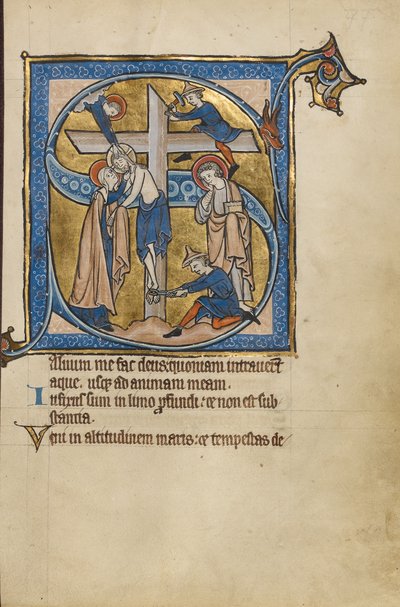 Saluum me fac deus: quoniam intrauer̄t
aque. usq; ad animam meam.
Infixus sum in limo ꝓfundi: ⁊c non est sub
stantia.
Veni in altitudinem maris: ⁊c tempestas de